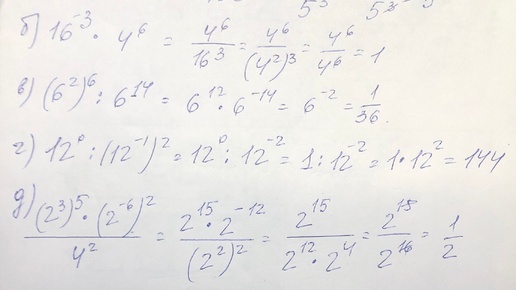 5³ 5³
б) 16⁻³ · 4⁶ = 4⁶/16³ = 4⁶/(4²)³ = 4⁶/4⁶ = 1
в) (6²)⁶ : 6¹⁴ = 6¹² · 6⁻¹⁴ = 6⁻² = 1/36.
г) 12⁰ : (12⁻¹)² = 12⁰ : 12⁻² = 1 : 12⁻² = 1 · 12² = 144
д) (2³)⁵ · (2⁻⁶)²/4² = 2¹⁵ · 2⁻¹²/(2²)² = 2¹⁵/2¹² · 2⁴ = 2¹⁵/2¹⁶ = 1/2